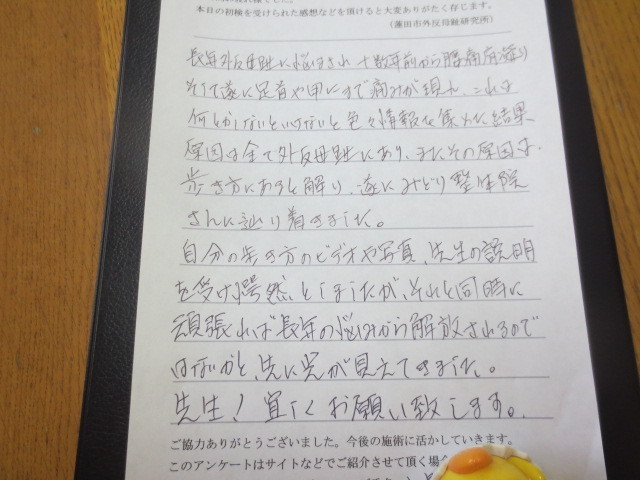 本日の初検を受けられた感想などを頂けると大変ありがたく存じます。
(蓮田市外反母趾研究所)
長年外反母趾に悩まされ十数年前から腰痛肩凝り
そして遂に足首や甲にまで痛みが現れ、これは
何とかしないといけないと色々情報を集めた結果
原因は全て外反母趾にあり、またその原因は、
歩き方にあると解り、遂にみどり整体院
さんに辿り着きました。
自分の歩き方のビデオや写真、先生の説明
を受け愕然としましたが、それと同時に
頑張れば長年の悩みから解放されるので
はないかと、先に光が見えてきました。
先生!宜しくお願い致します。
ご協力ありがとうございました。今後の施術に活かしていきます。
このアンケートはサイトなどでご紹介させて頂く場